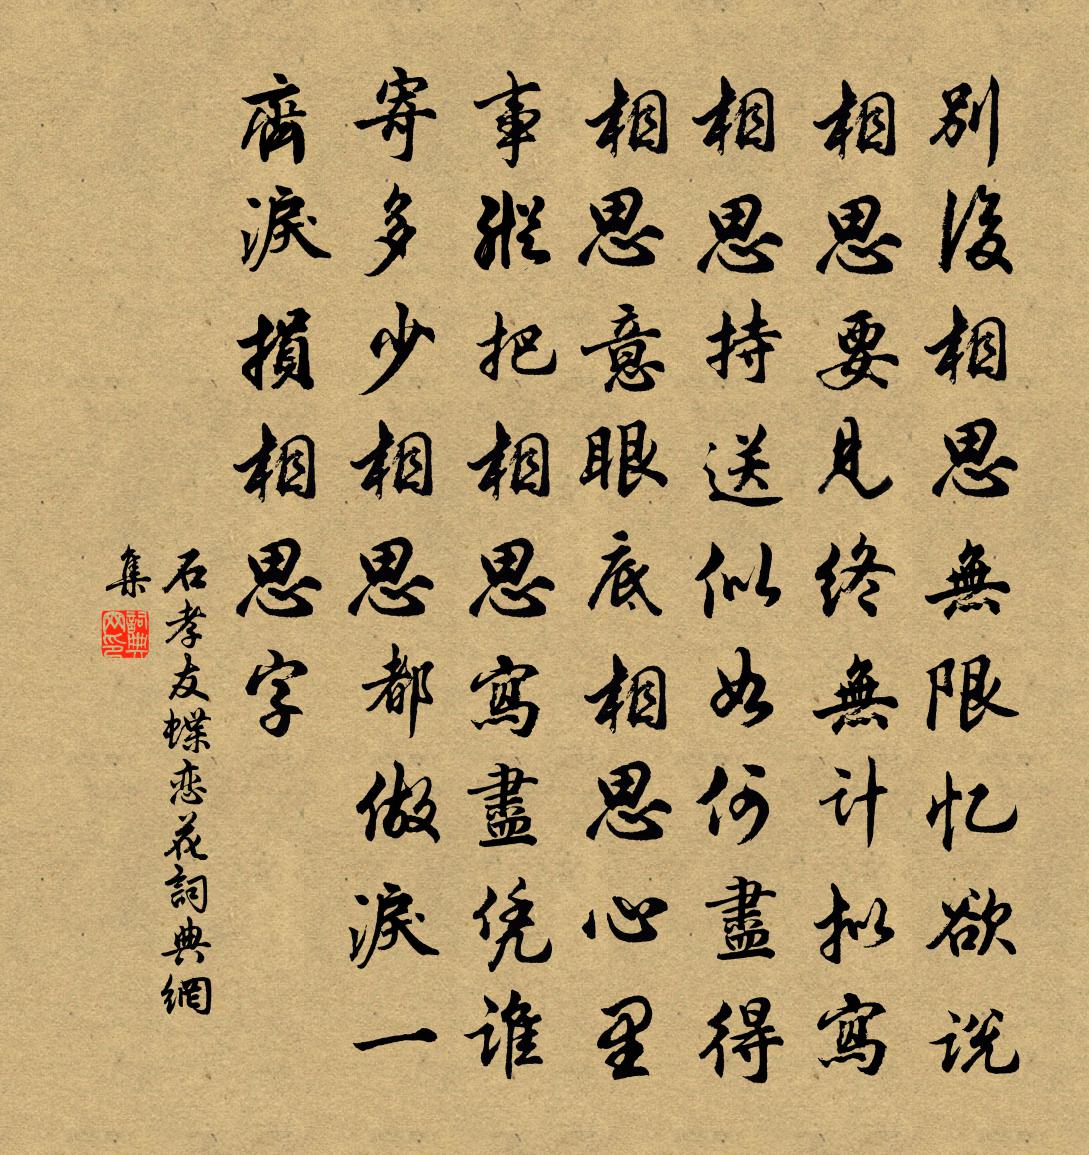 別後相思無限忆欲说
相思要見终無计拟寫
相思持送似如何盡得
相思意眼底相思心里
事縱把相思寫盡凭谁
寄多少相思都做淚一
齊淚損相思字
石孝友蝶恋花詞典網
集
詞典網印